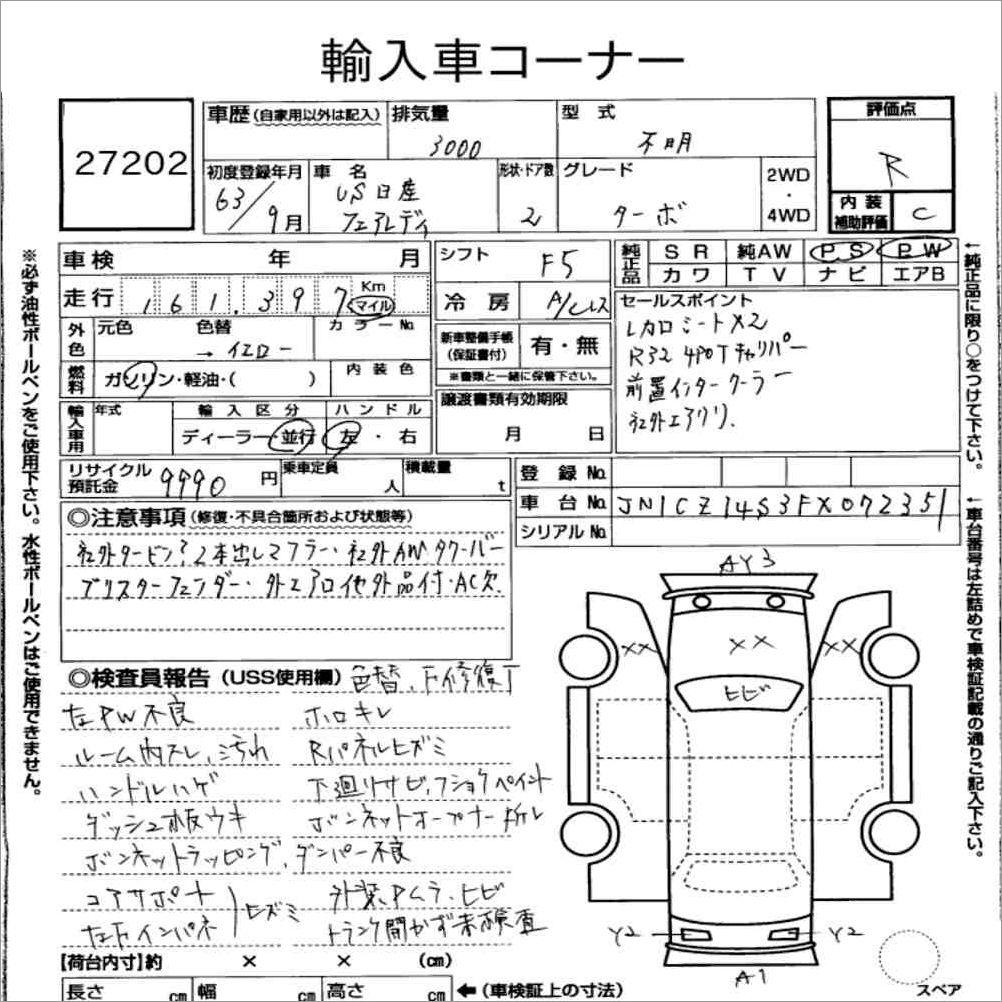 輸入車コーナー
27202
車歴(自家用以外は記入)
排気量
3000
型 式
不明
評価点
R
初度登録年月
63/9月
車 名
US日産
フェアレディ
形状・ドア数
2
グレード
ターボ
2WD
・
4WD
内 装
補助評価
C
車検 年 月
シフト
F5
純正品
S R 純AW P S P W
カワ T V ナビ エアB
走行 161,397 Km
マイル
冷 房
A/Cレス
セールスポイント
レカロシートX2
R32 4POTキャリパー
前置インタークーラー
社外エアクリ.
外色
元色 色替 カラーNo
→ イエロー
新車整備手帳
(保証書付)
有・無
※書類と一緒に保管下さい。
燃料
ガソリン・軽油・( )
内 装 色
譲渡書類有効期限
月 日
輸入車用
年式
輸 入 区 分
ディーラー・並行
ハ ン ド ル
左・右
リサイクル
預託金
9990 円
乗車定員
人
積載量
t
登 録 No.
車 台 No.
JN1CZ14S3FX072351
シリアルNo.
◎注意事項(修復・不具合箇所および状態等)
社外タービン?2本出しマフラー・社外AW.タワーバー
ブリスターフェンダー・外エアロ他外品付・AC欠.
◎検査員報告(USS使用欄)
色替、F修復
左PW不良
ホロキレ
ルーム内スレ、汚れ
Rパネルヒズミ
ハンドルハゲ
下廻りサビ、フショクペイント
ダッシュ板ウキ
ボンネットオープナー
ボンネットラッピング、ダンパー不良
コアサポート
左Fインパネ
ヒズミ
外装Pムラ、ヒビ
トランク開かず未検査
AY3
XX
XX
XX
ヒビ
Y2
Y2
A1
スペア
【荷台内寸】約 × × (cm)
長さ cm 幅 cm 高さ cm ←(車検証上の寸法)
※必ず油性ボールペンをご使用下さい。水性ボールペンはご使用できません。
←純正品に限り○をつけて下さい。
←車台番号は左詰めで車検証記載の通りご記入下さい。